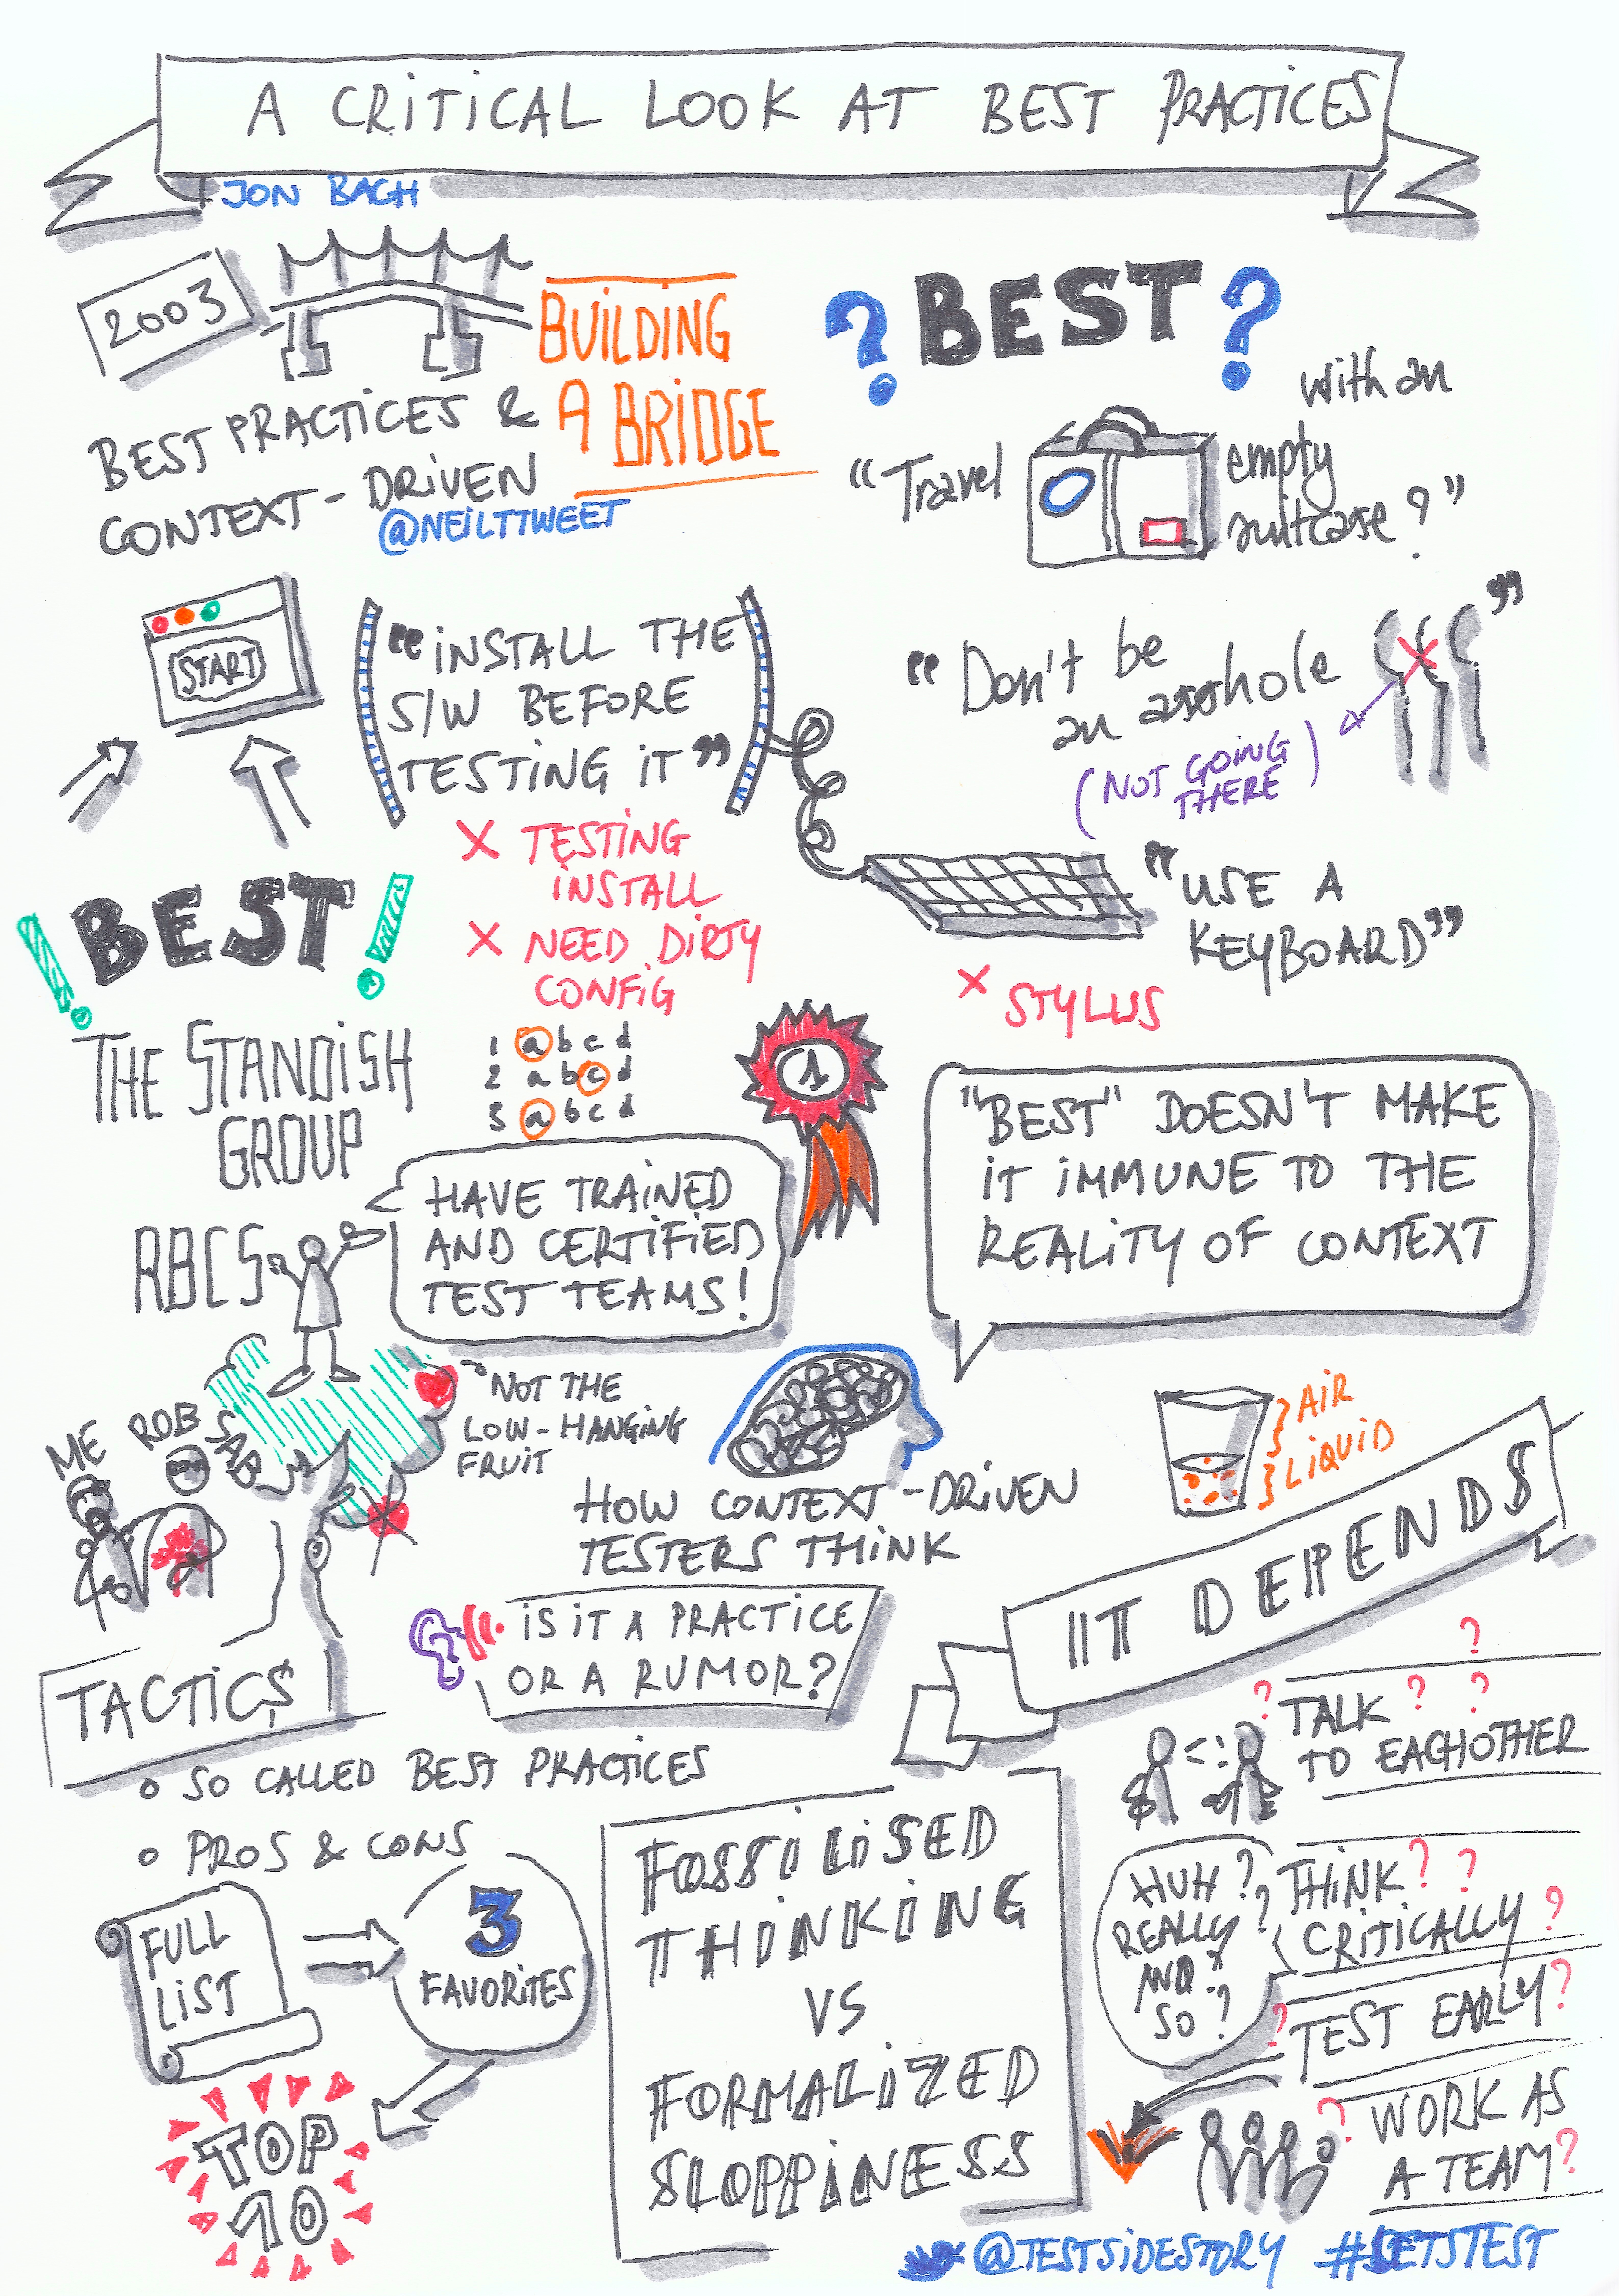 A CRITICAL LOOK AT BEST PRACTICES
JON BACH
2003
BUILDING
A BRIDGE
BEST PRACTICES &
CONTEXT-DRIVEN
@NEILTTWEET
? BEST ?
"Travel
with an
empty
suitcase?"
START
"INSTALL THE
S/W BEFORE
TESTING IT"
X TESTING
INSTALL
X NEED DIRTY
CONFIG
"Don't be
an asshole
"
(NOT GOING
THERE)
"USE A
KEYBOARD"
X STYLUS
! BEST !
THE STANDISH
GROUP
1 a b c d
2 a b c d
3 a b c d
1
RBCS
HAVE TRAINED
AND CERTIFIED
TEST TEAMS!
"BEST" DOESN'T MAKE
IT IMMUNE TO THE
REALITY OF CONTEXT
NOT THE
LOW-HANGING
FRUIT
ME
ROB
HOW CONTEXT-DRIVEN
TESTERS THINK
AIR
LIQUID
IT DEPENDS
IS IT A PRACTICE
OR A RUMOR?
TACTICS
o SO CALLED BEST PRACTICES
o PROS & CONS
FULL
LIST
3
FAVORITES
TOP
10
FOSSILISED
THINKING
VS
FORMALIZED
SLOPPINESS
? ? ? ?
TALK
TO EACHOTHER
HUH?
REALLY?
AND?
SO?
THINK? ?
CRITICALLY?
? TEST EARLY?
? WORK AS
A TEAM?
@TESTSIDESTORY #LETSTEST